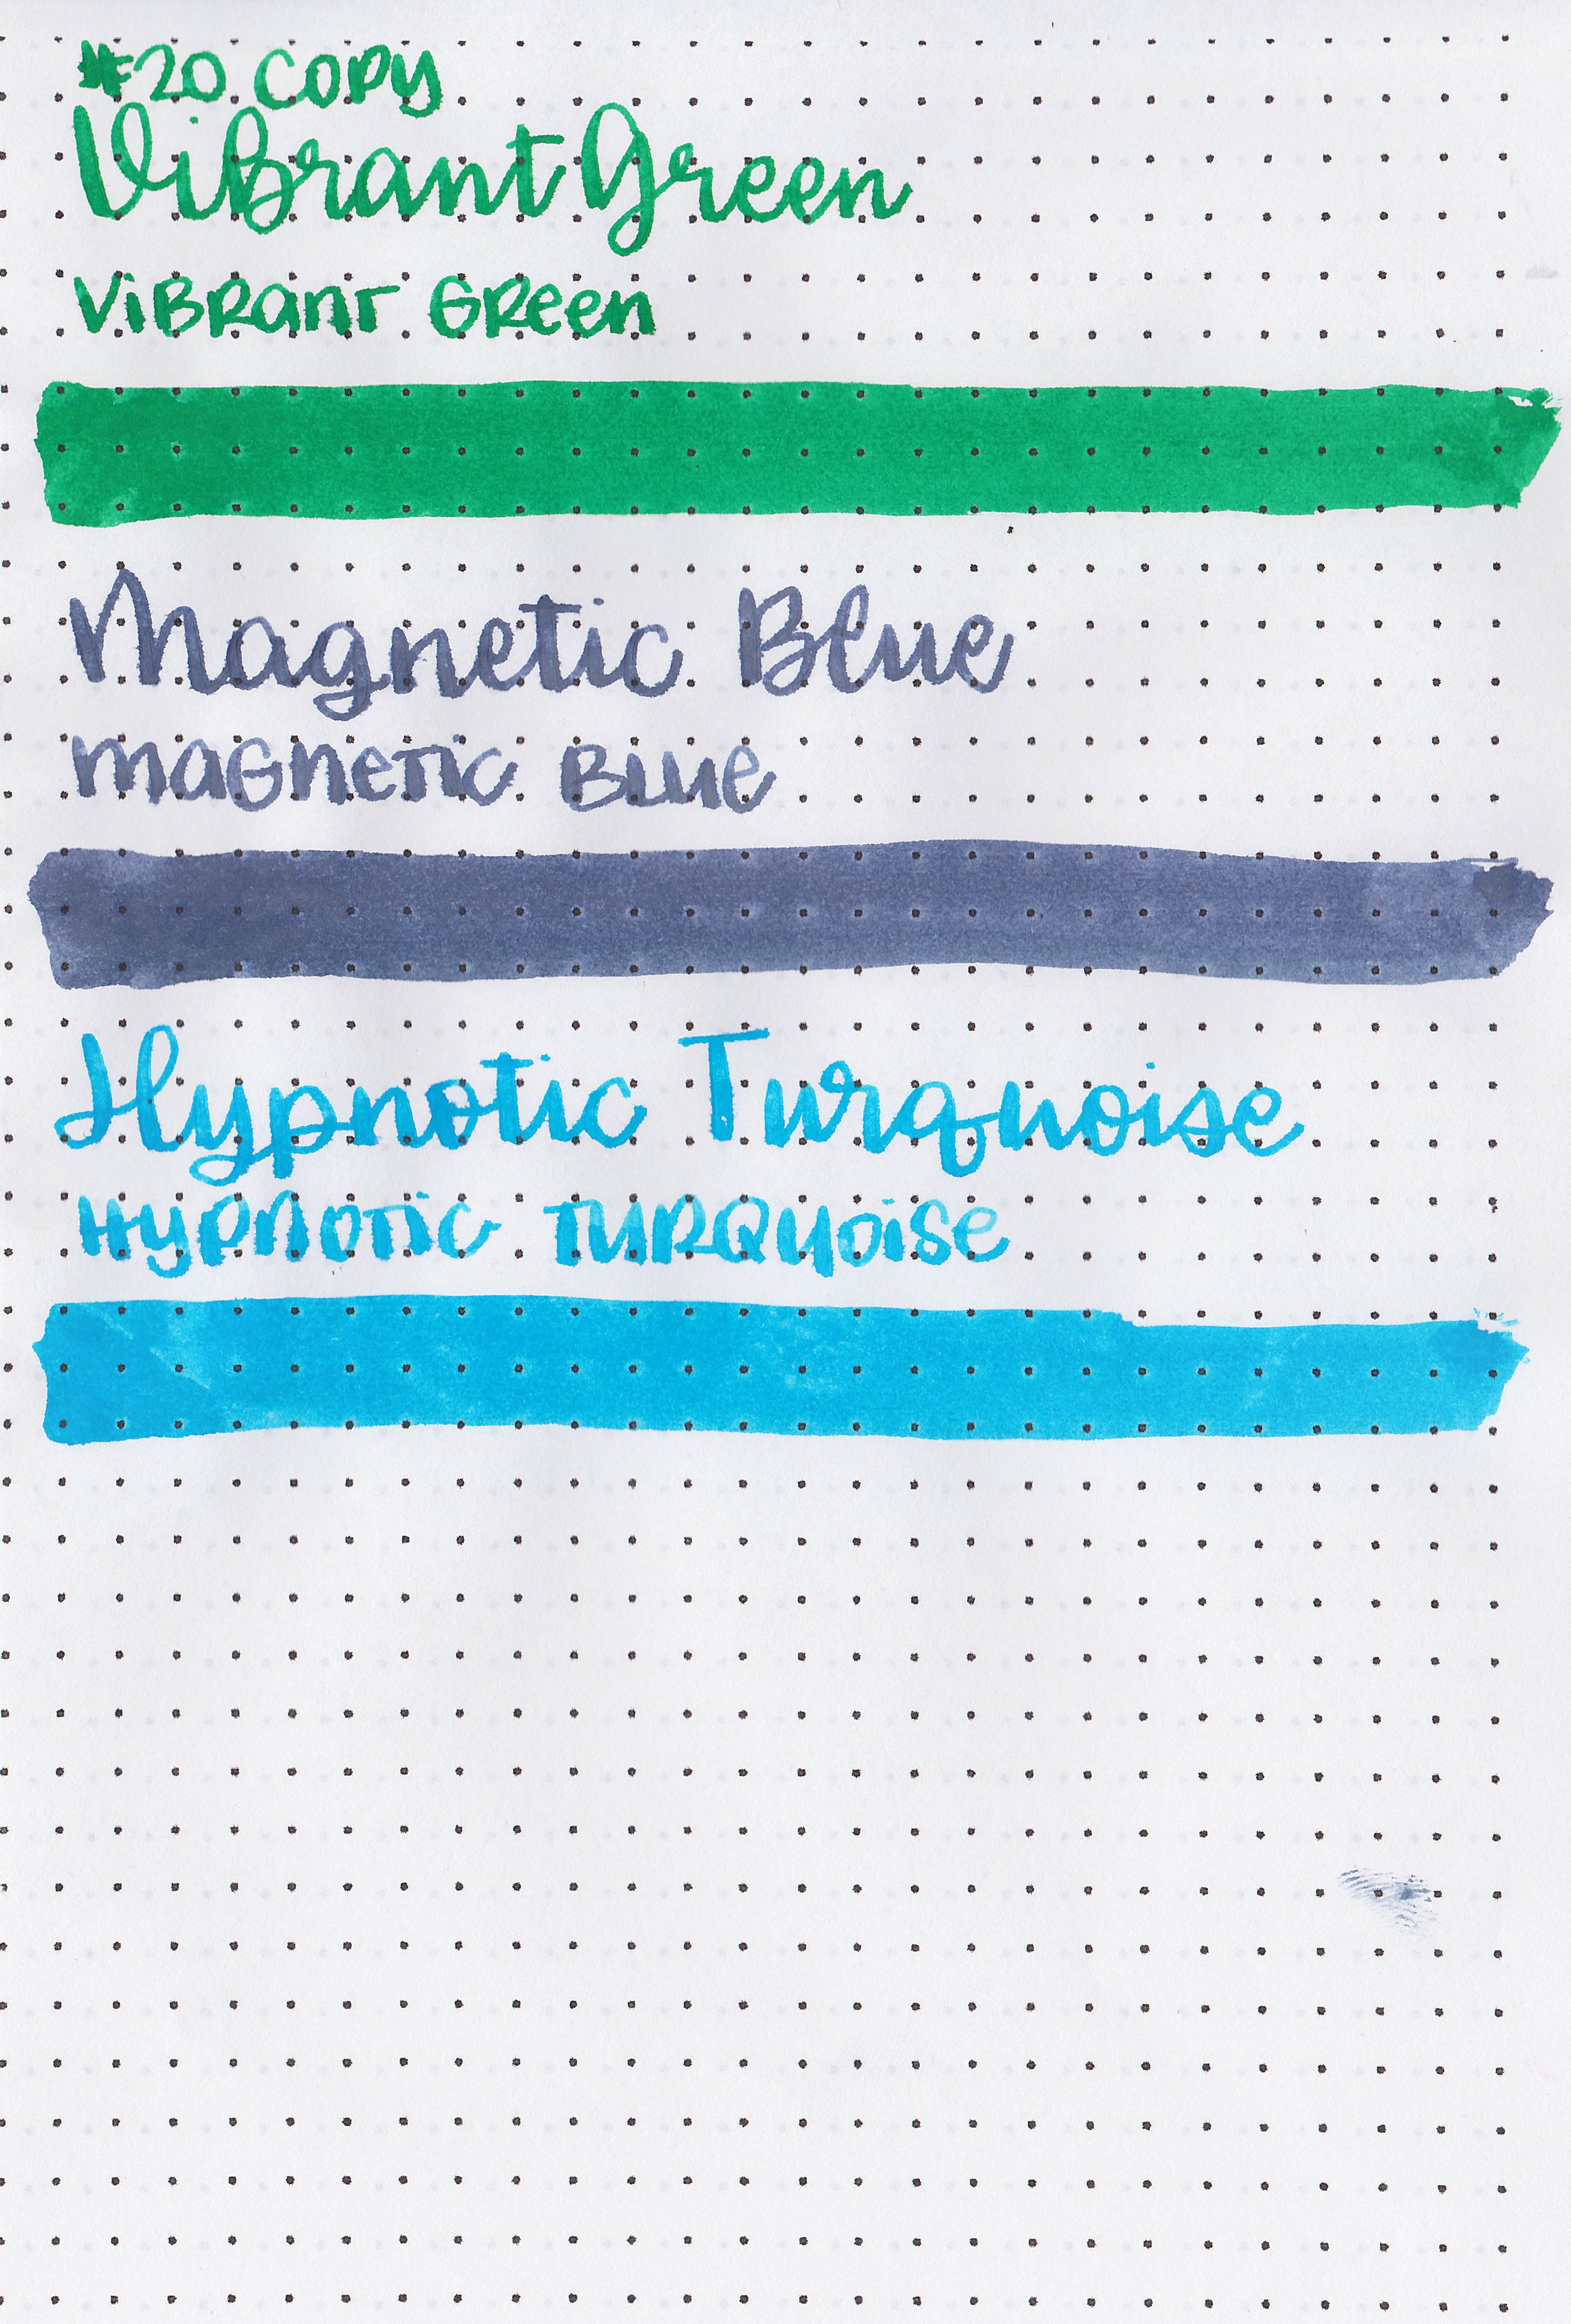 #20 Copy
Vibrant Green
Vibrant Green
Magnetic Blue
Magnetic Blue
Hypnotic Turquoise
Hypnotic Turquoise